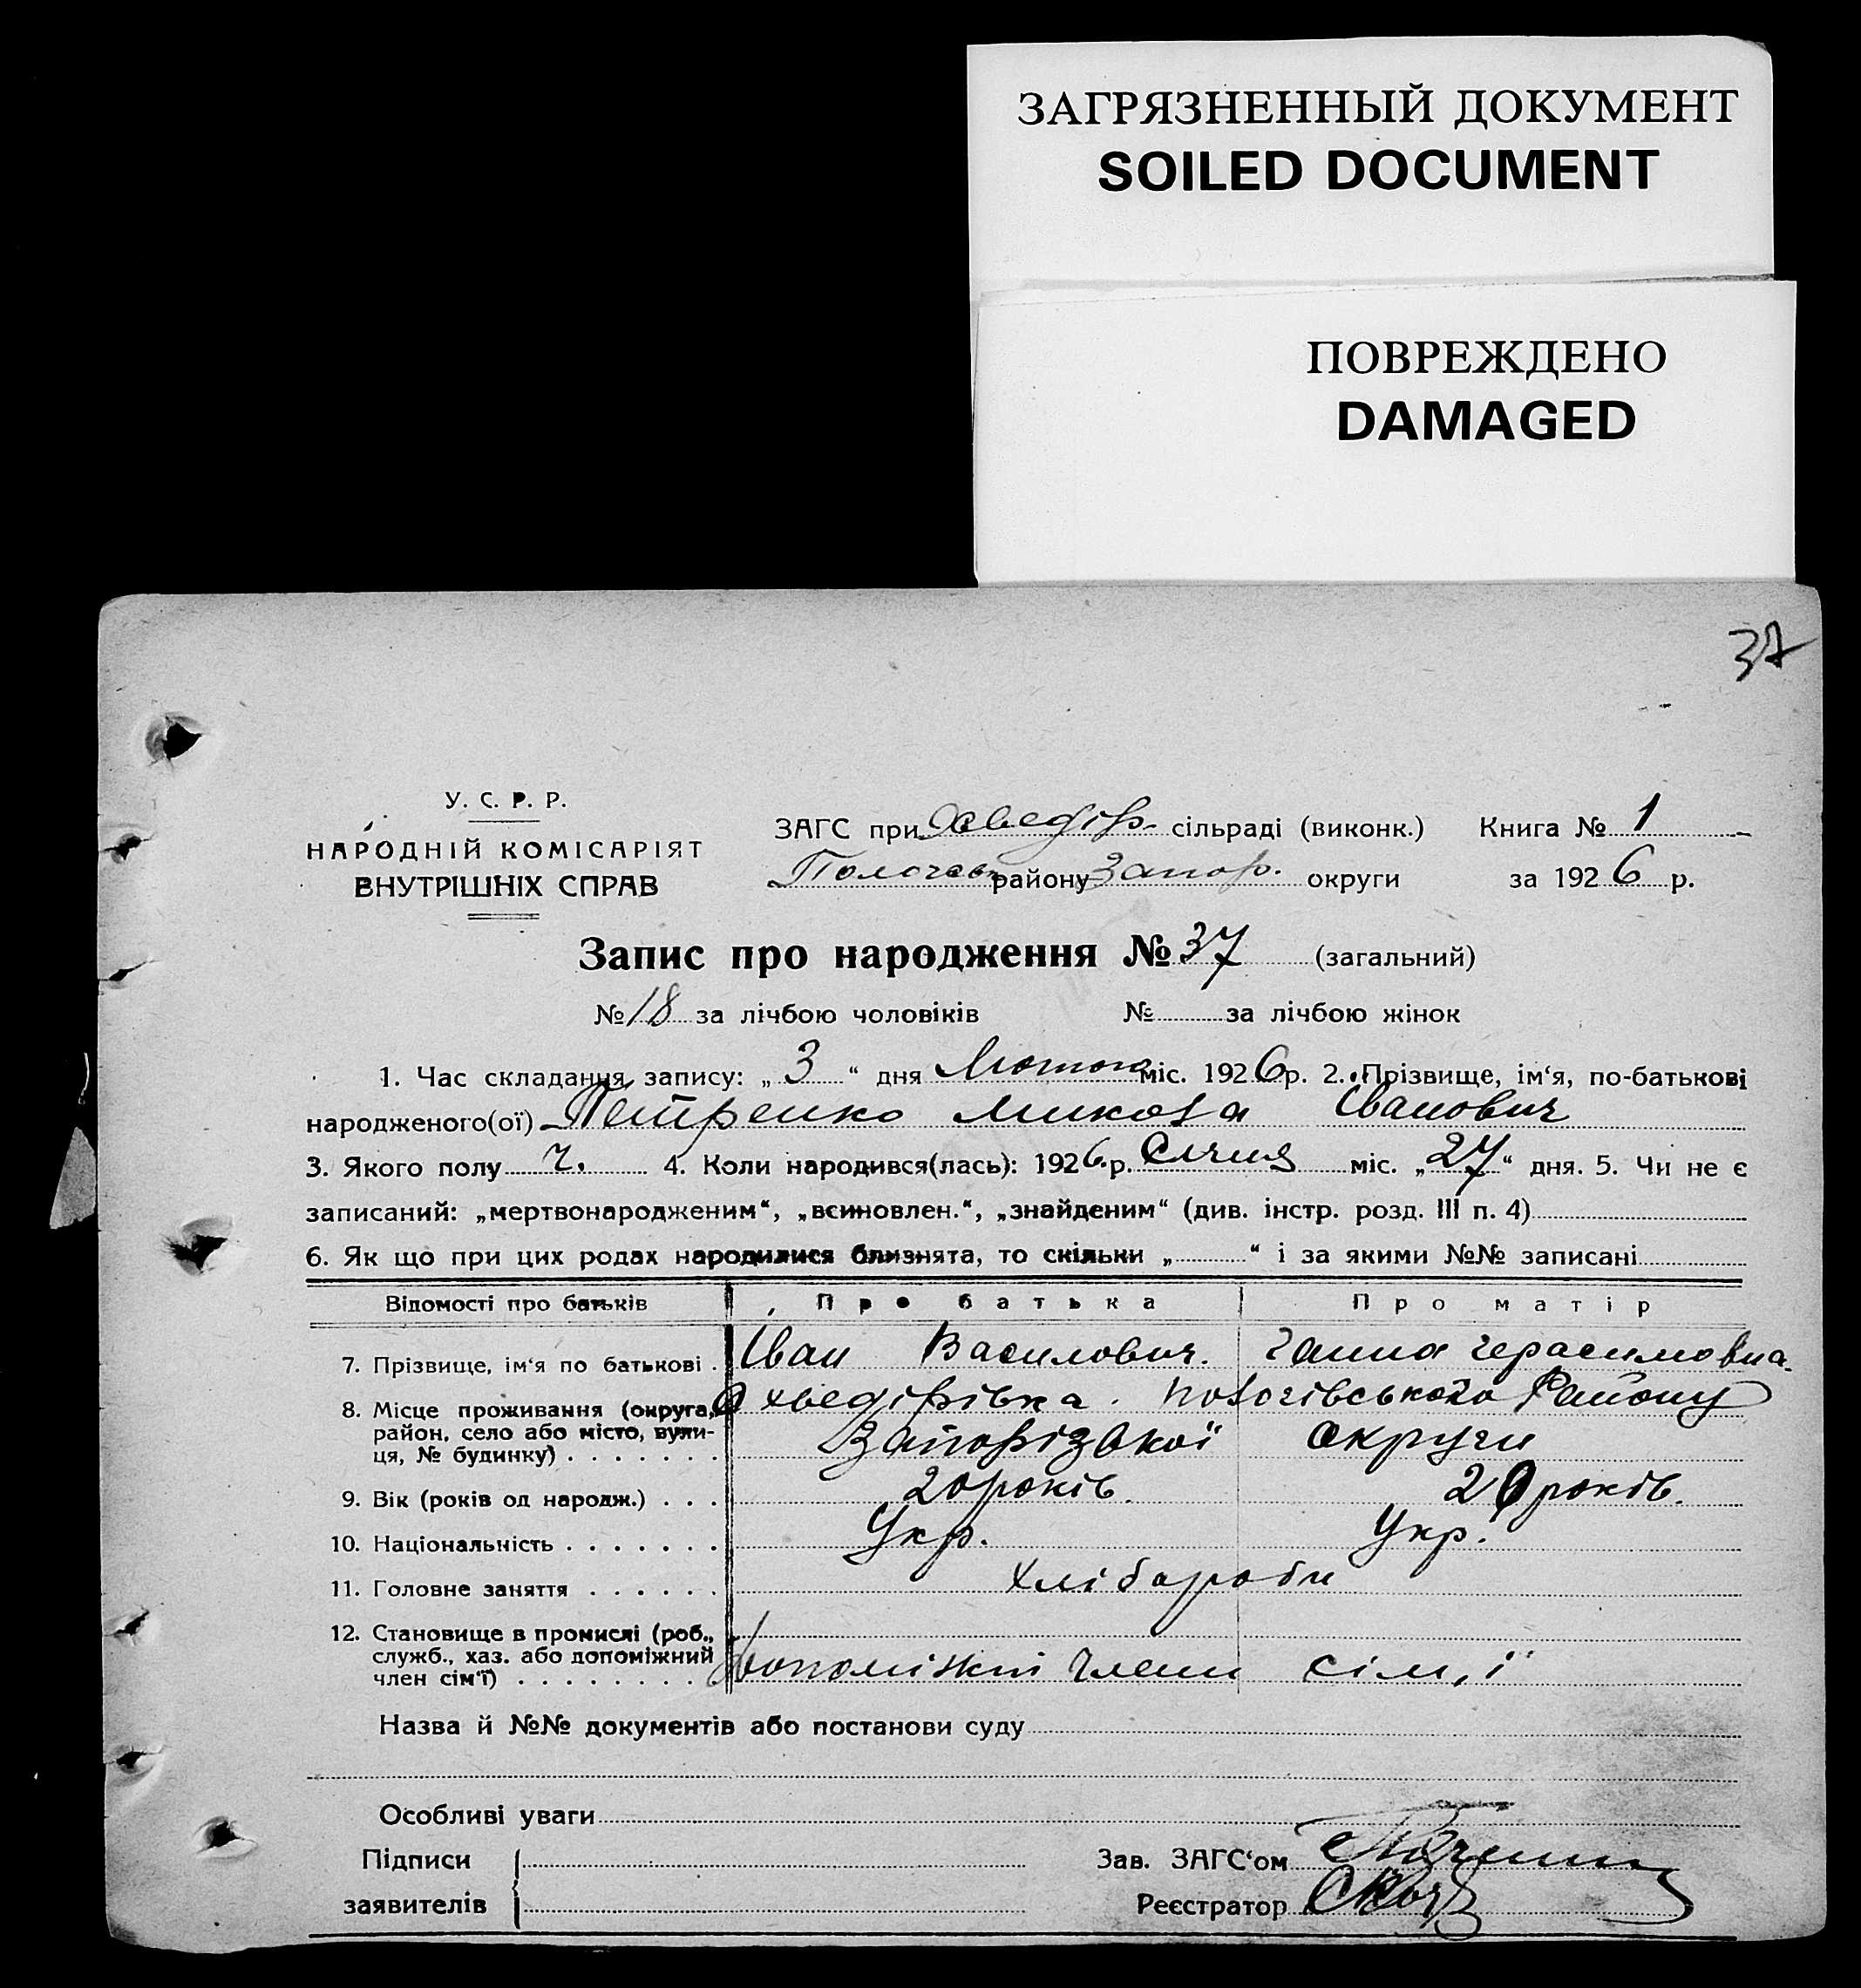 ЗАГРЯЗНЕННЫЙ ДОКУМЕНТ
SOILED DOCUMENT
ПОВРЕЖДЕНО
DAMAGED
37
У. С. Р. Р.
НАРОДНІЙ КОМІСАРІЯТ
ВНУТРІШНІХ СПРАВ
ЗАГС при Хведір. сільраді (виконк.) Книга № 1
району Запор. округи за 1926 р.
Запис про народження № 37 (загальний)
№ 18 за лічбою чоловіків № за лічбою жінок
1. Час складання запису: „3“ дня Лютого міс. 1926 р. 2. Прізвище, ім‘я, по-батькові
народженого(ої) Петренко Микола Іванович
3. Якого полу ч. 4. Коли народився(лась): 1926 р. Січня міс. „27“ дня. 5. Чи не є
записаний: „мертвонародженим“, „всиновлен.“, „знайденим“ (див. інстр. розд. III п. 4)
6. Як що при цих родах народилися близнята, то скільки „ “ і за якими №№ записані
Відомості про батьків Про батька Про матір
7. Прізвище, ім‘я по батькові . Іван Василович. Ганна Герасимовна.
8. Місце проживання (округа, район, село або місто, вулиця, № будинку) . . . . . . . Хведірівка. Пологівського Району
Запорізької округи
9. Вік (років од народж.) . . . 20 років. 20 років.
10. Національність . . . . . . . Укр. Укр.
11. Головне заняття . . . . . . хлібороби
12. Становище в промислі (роб., служб., хаз. або допоміжний член сім‘ї) . . . . . . . . Допоміжні члени сім,ї
Назва й №№ документів або постанови суду
Особливі уваги
Підписи
заявителів
Зав. ЗАГС‘ом
Реєстратор